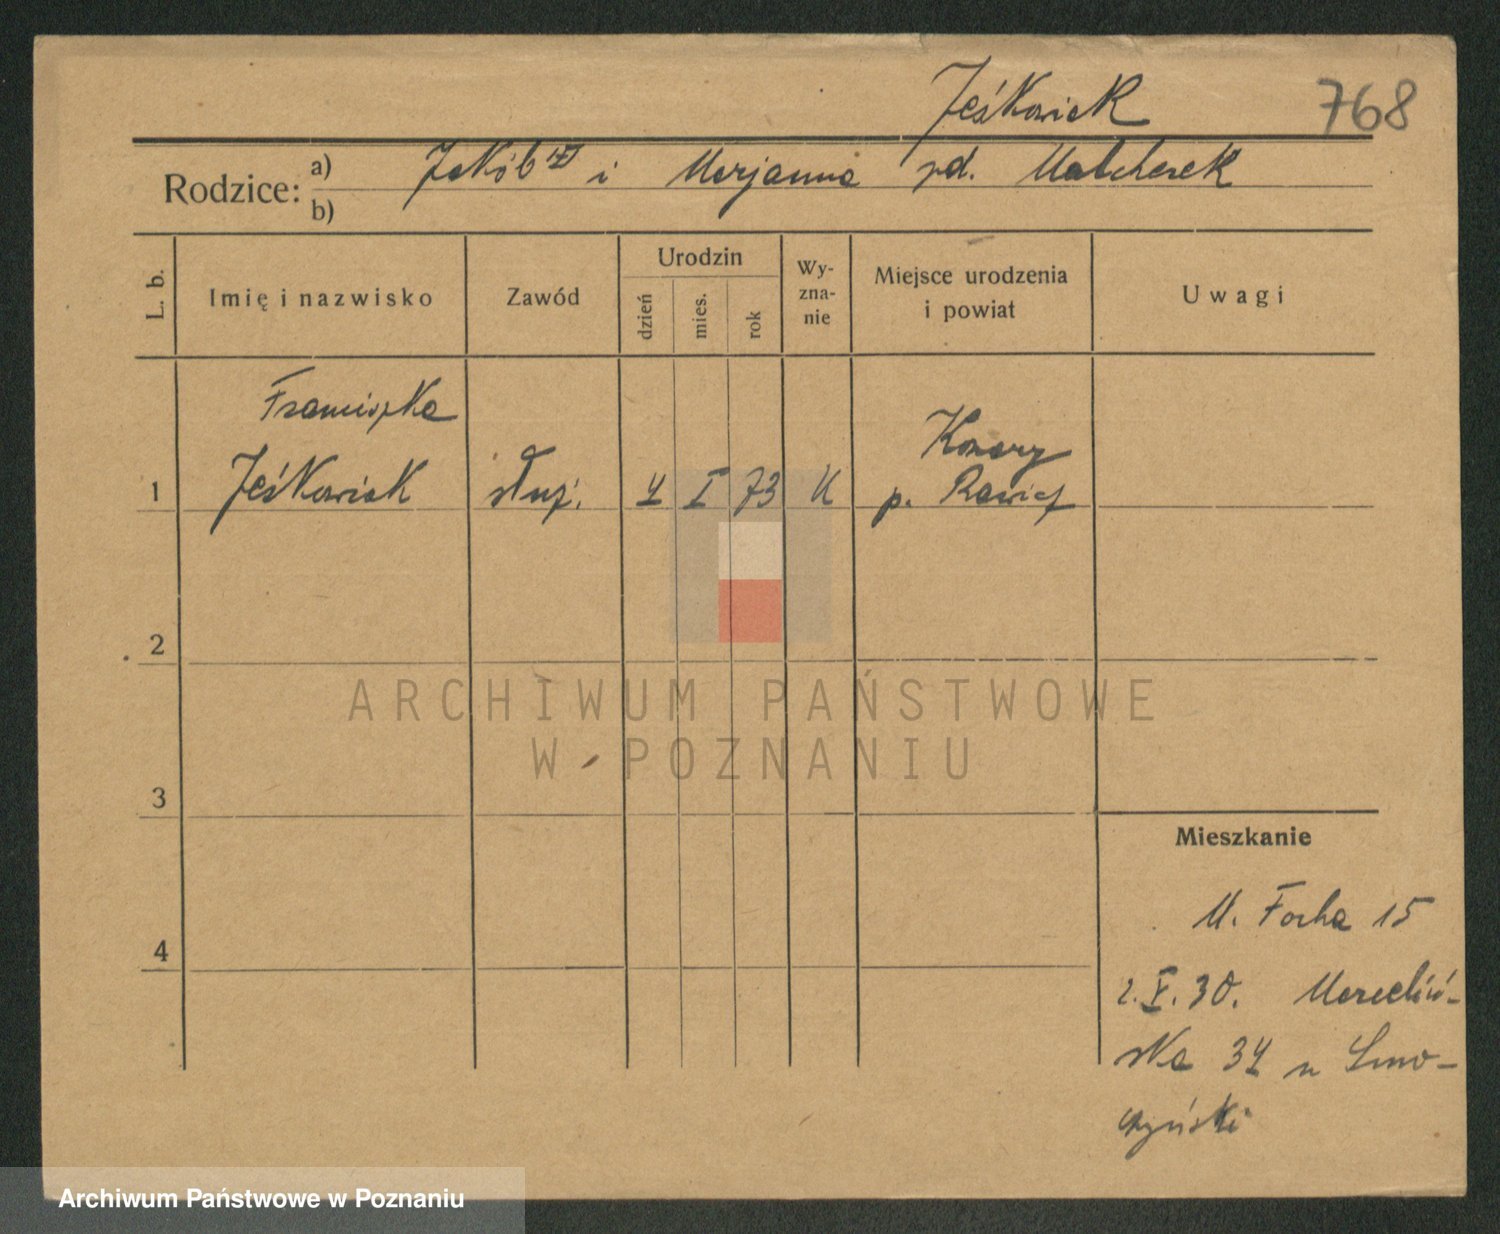 Jeśkowiak
768
Rodzice:
a) Jakób i Marjanna zd. Malcherek
b)
L. b.
Imię i nazwisko
Zawód
Urodzin
dzień
mies.
rok
Wy-
zna-
nie
Miejsce urodzenia
i powiat
Uwagi
Franciszka
1 Jeśkowiak służ. 4 I 73 K
Konary
p. Rawicz
2
3
4
Mieszkanie
M. Focha 15
2. X. 30. Marceliń-
ska 34 u Smo-
czyński
ARCHIWUM PAŃSTWOWE
W POZNANIU
Archiwum Państwowe w Poznaniu